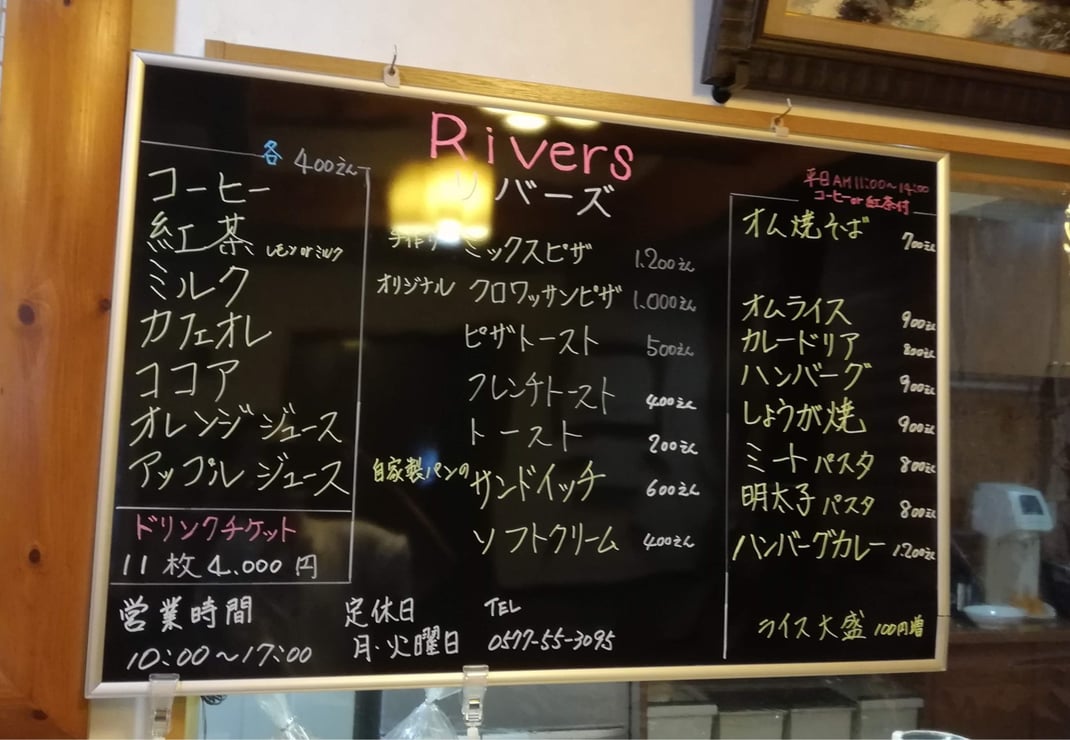 Rivers
リバーズ
各 400えん
コーヒー
紅茶 レモン or ミルク
ミルク
カフェオレ
ココア
オレンジジュース
アップルジュース
ドリンクチケット
11枚 4.000円
手作り ミックスピザ 1.200えん
オリジナル クロワッサンピザ 1.000えん
ピザトースト 500えん
フレンチトースト 400えん
トースト 200えん
自家製パンの サンドイッチ 600えん
ソフトクリーム 400えん
平日AM11:00~14:00
コーヒーor紅茶付
オム焼そば 700えん
オムライス 900えん
カレードリア 800えん
ハンバーグ 900えん
しょうが焼 900えん
ミートパスタ 800えん
明太子パスタ 800えん
ハンバーグカレー 1.200えん
ライス大盛 100円増
営業時間
10:00~17:00
定休日
月・火曜日
TEL
0577-55-3095